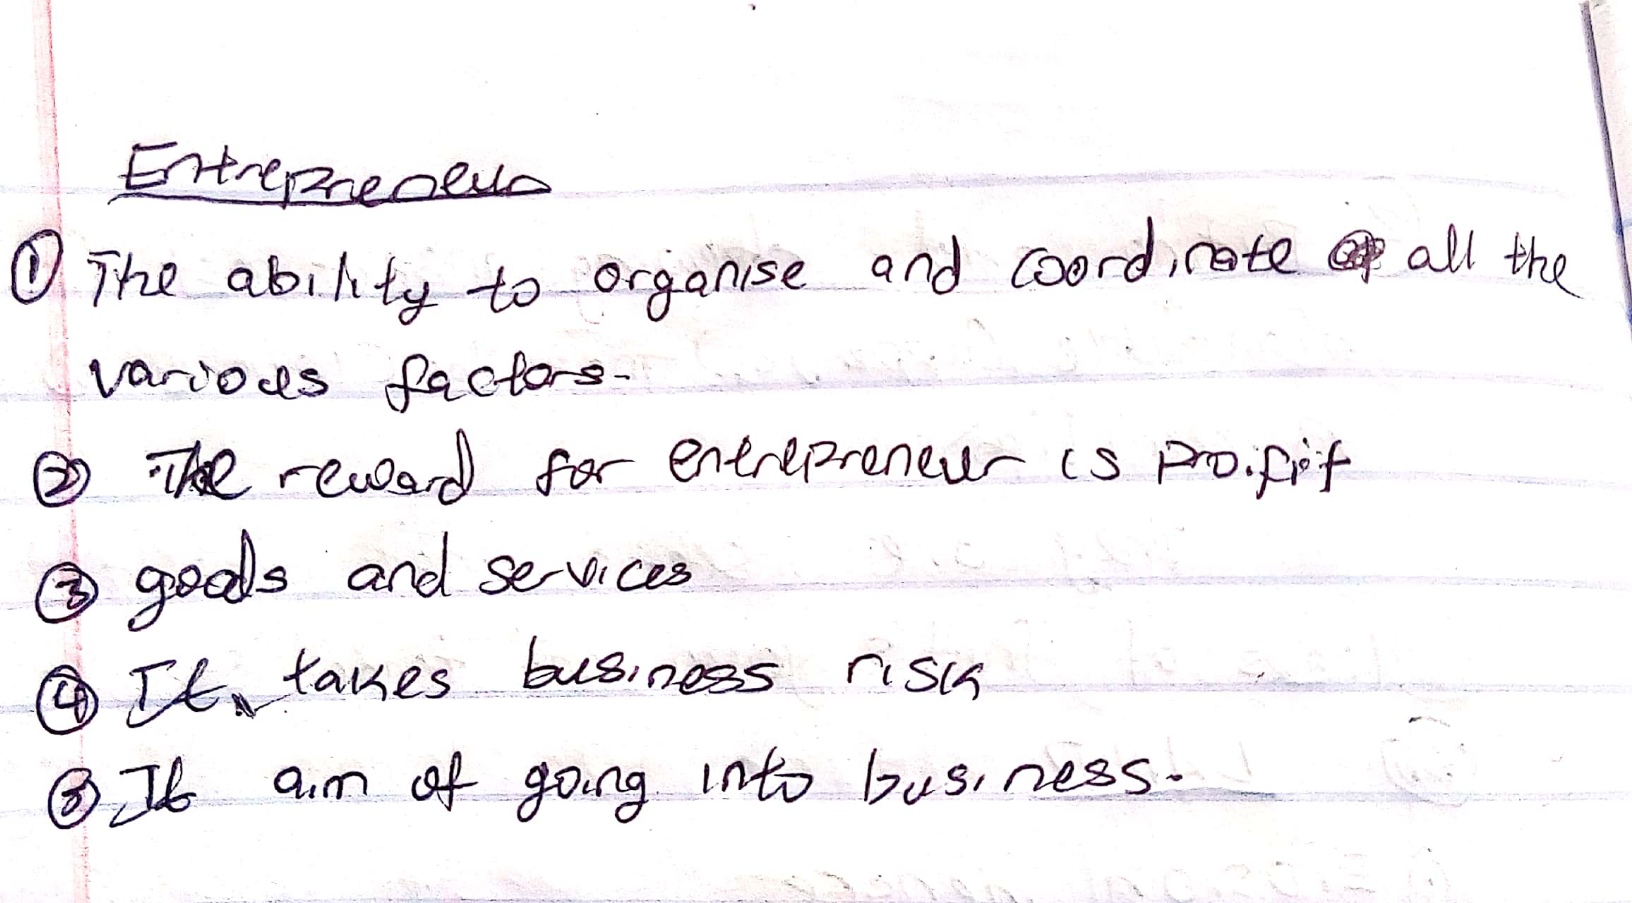 Entrepreneur
① The ability to organise and coordinate all the
various factors.
② The reward for entrepreneur is profit
③ goods and services
④ It takes business risk
⑤ It aim of going into business.